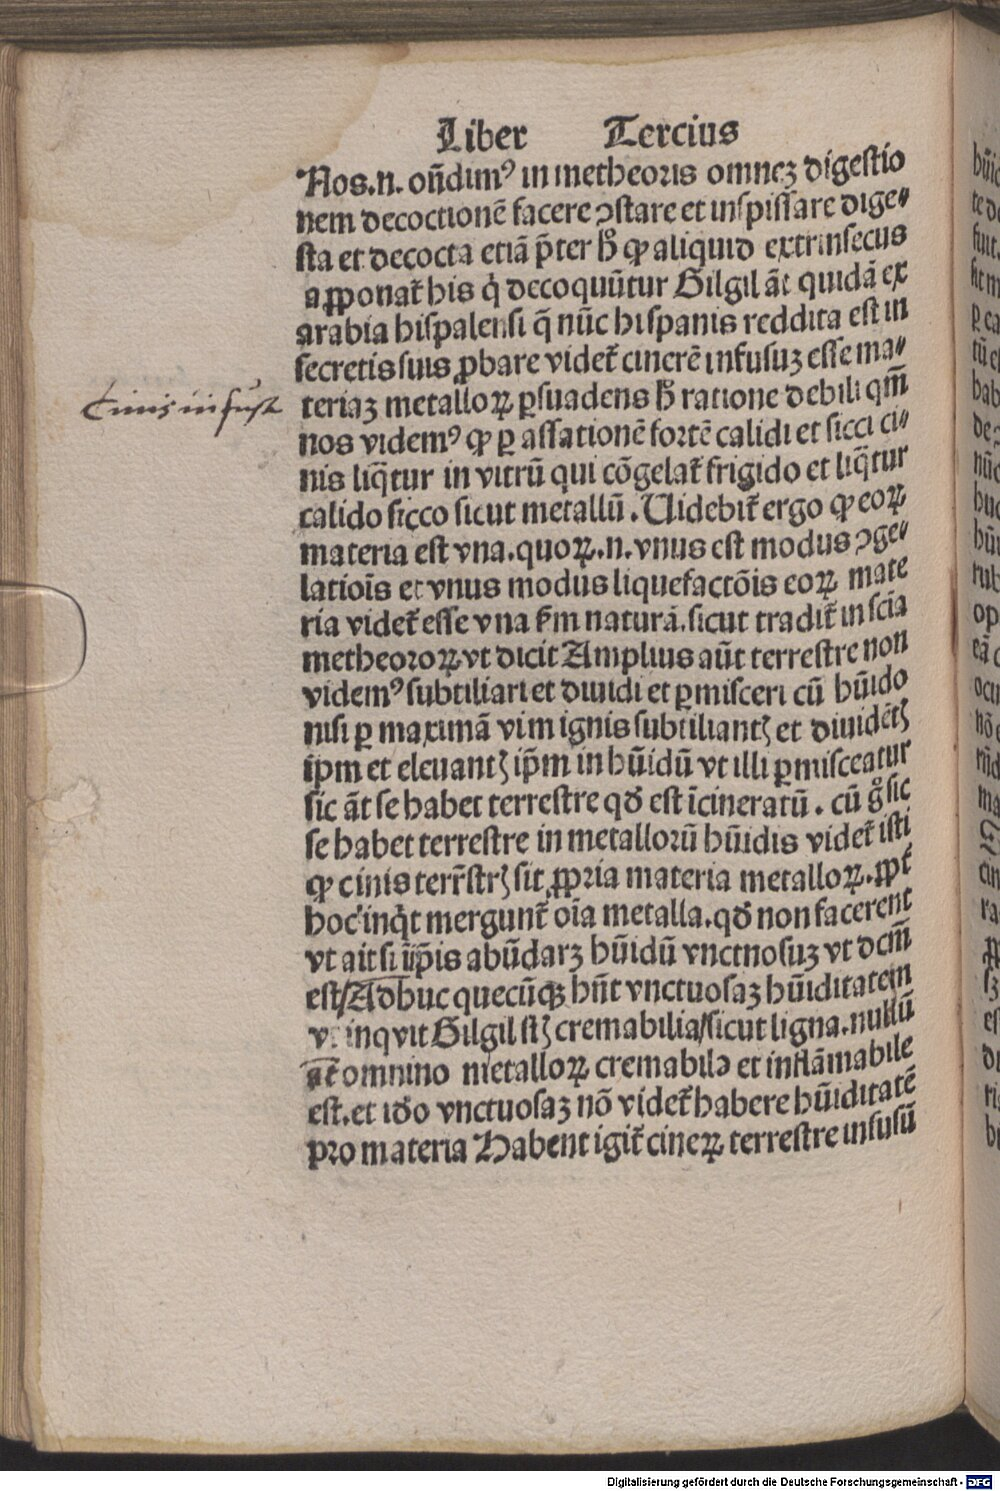 Liber Tercius
Nos.n. oñdimꝰ in metheoris omneꝫ digestio
nem decoctionē facere ↄstare et inspissare dige⸗
sta et decocta etiã p̃ter ħ ꝙ aliquid extrinsecus
aꝓponat᷑ his q̇ decoquūtur Gilgil ãt quidã ex
arabia hispalensi q̃ nūc hispanis reddita est in
secretis suis ꝓbare videt᷑ cinerē infusuꝫ esse ma⸗
teriaꝫ metalloꝝ ꝑsuadens ħ ratione debili qm̃
nos videmꝰ ꝙ ꝑ assationē fortē calidi et sicci ci⸗
nis liq̃tur in vitrū qui cōgelat᷑ frigido et liq̃tur
calido sicco sicut metallū. Uidebit᷑ ergo ꝙ eoꝝ
materia est vna. quoꝝ.n. vnus est modus ↄge⸗
latiōis et vnus modus liquefactōis eoꝝ mate
ria videt᷑ esse vna fm naturã. sicut tradit᷑ in scīa
metheoroꝝ. vt dicit Amplius aūt terrestre non
videmꝰ subtiliari et diuidi et ꝑmisceri cū hūido
nisi ꝑ maximã vim ignis subtiliantꝭ et diuidētꝭ
ip̃m et eleuantꝭ ip̃m in hūidū vt illi ꝑmisceatur
sic ãt se habet terrestre qđ est īcineratū. cū gͦ sic
se habet terrestre in metallorū hūidis videt᷑ isti
ꝙ cinis terr̃strꝭ sit ꝓpria materia metalloꝝ. ꝓpt᷑
hoc inq̇t mergunt᷑ oīa metalla. qđ non facerent
vt ait si īip̃is abūdarꝫ hūidū vnctuosuꝫ vt dcm̃
est/Adhuc quecūqꝫ hñt vnctuosaꝫ hūiditatem
vt inqvit Gilgil stꝭ cremabilia/sicut ligna. nullū
at̄ omnino metalloꝝ cremabile et inflãmabile
est. et iđo vnctuosaꝫ nō videt᷑ habere hūiditatē
pro materia Habent igit᷑ cineꝝ terrestre infusū
Cinis infusꝰ
Digitalisierung gefördert durch die Deutsche Forschungsgemeinschaft - DFG